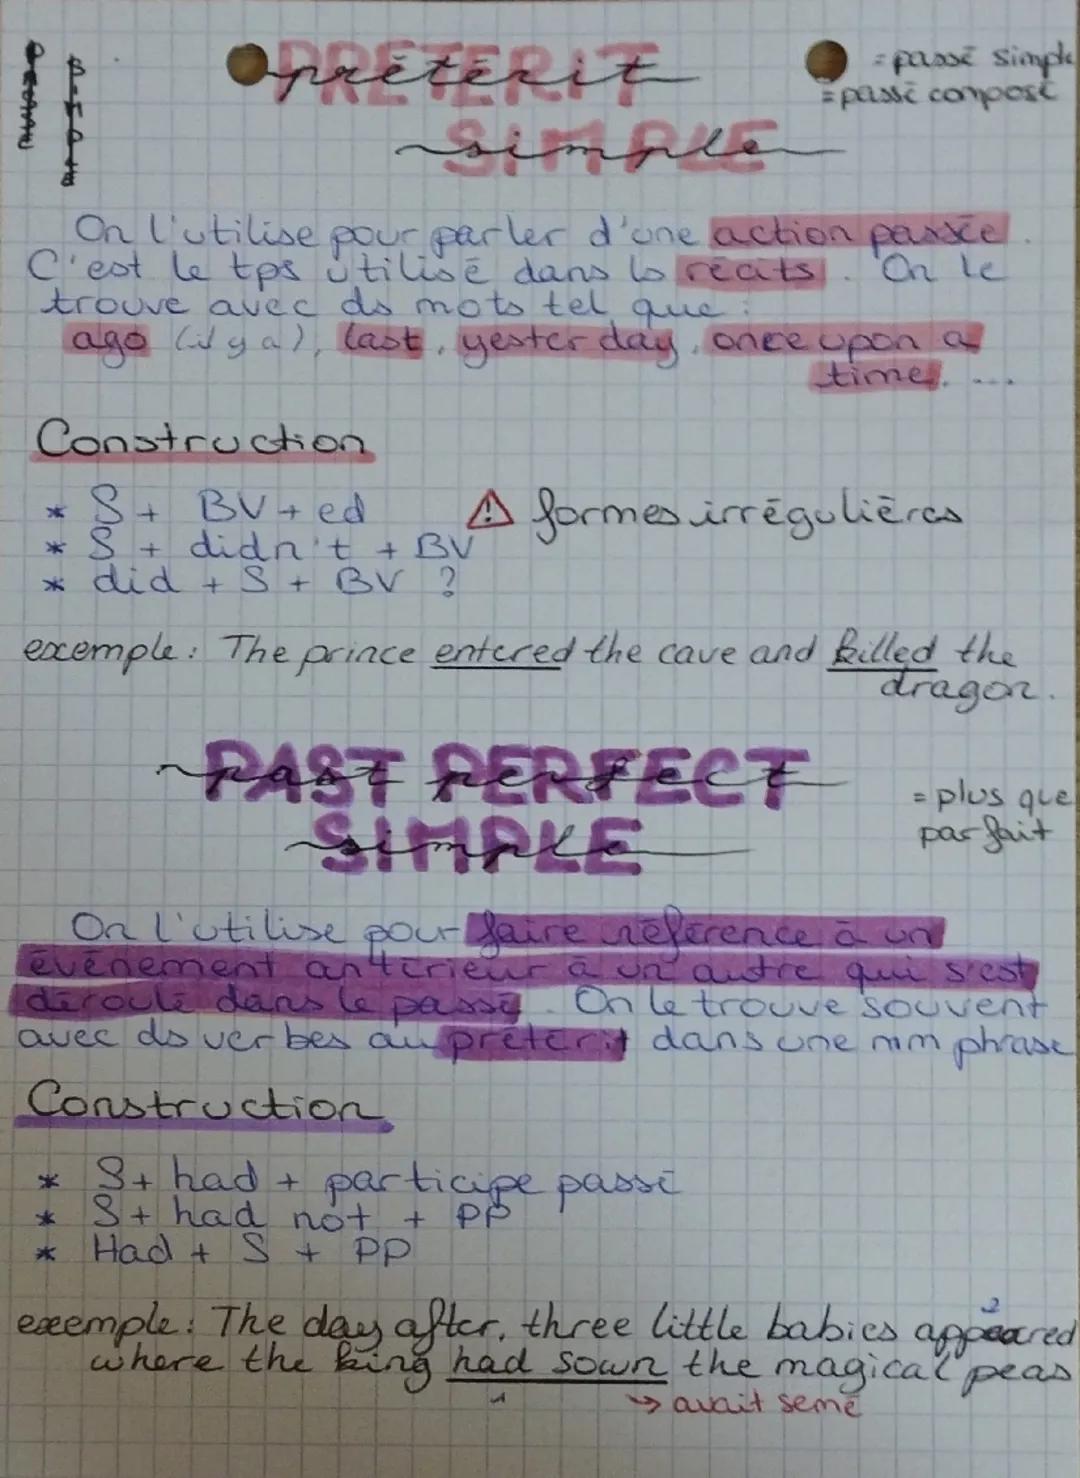 PRÉTÉRIT
prétérit
SIMPLE
simple
= passé simple
= passé composé
On l'utilise pour parler d'une action passée.
C'est le tps utilisé dans ls récits. On le
trouve avec ds mots tel que :
ago (il y a), last, yesterday, once upon a
time, ...
Construction
* S + BV + ed ⚠ formes irrégulières
* S + didn't + BV
* did + S + BV ?
exemple : The prince entered the cave and killed the
dragon.
PAST PERFECT
past perfect
SIMPLE
simple
= plus que
parfait
On l'utilise pour faire référence à un
événement antérieur à un autre qui s'est
déroulé dans le passé. On le trouve souvent
avec ds verbes au prétérit dans une mm phrase
Construction
* S + had + participe passé
* S + had not + PP
* Had + S + PP
exemple : The day after, three little babies appeared
2
where the king had sown the magical peas
1
→ avait semé